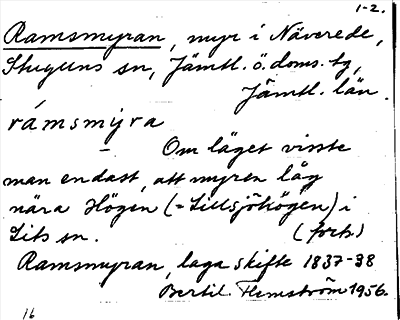 1-2.
Ramsmyran, myr i Näverede,
Stuguns sn, Jämtl. ö. doms. tg,
Jämtl. län.
rámsmýra
Om läget visste
man endast, att myren låg
nära Högen (= Lillsjöhögen) i
Lits sn. (forts.)
Ramsmyran, laga skifte 1837-38
Bertil Flemström 1956.
16